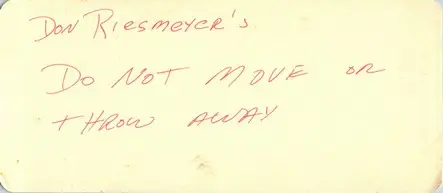 Don Riesmeyer's
Do NOT MOVE OR
THROW AWAY